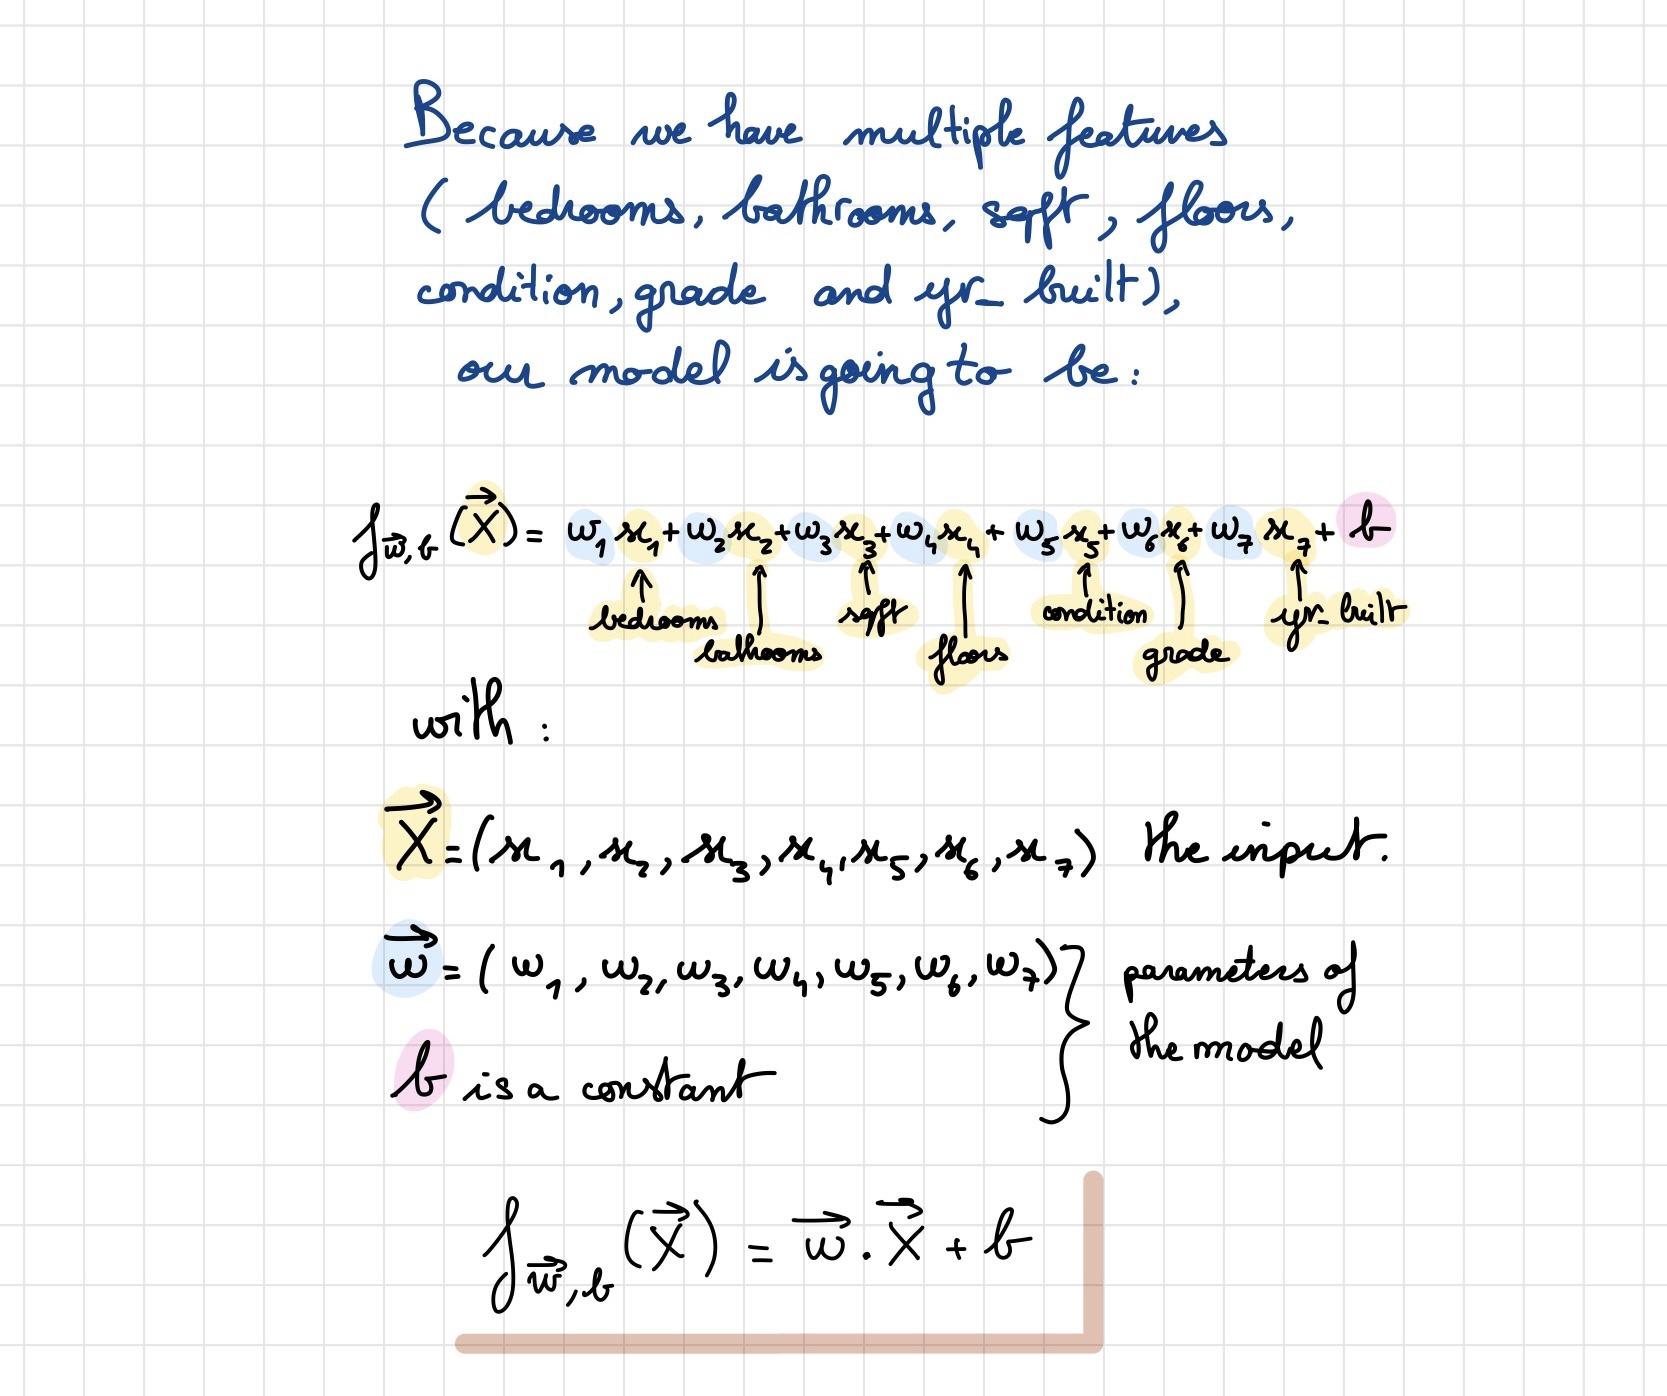 Because we have multiple features
( bedrooms, bathrooms, sqft, floors,
condition, grade and yr_ built),
our model is going to be:
f w⃗,b (X⃗) = w₁x₁ + w₂x₂ + w₃x₃ + w₄x₄ + w₅x₅ + w₆x₆ + w₇x₇ + b
bedrooms sqft condition yr_ built
bathooms floors grade
with :
X⃗ = (x₁, x₂, x₃, x₄, x₅, x₆, x₇) the input.
w⃗ = (w₁, w₂, w₃, w₄, w₅, w₆, w₇) } parameters of
the model
b is a constant
f w⃗,b (X⃗) = w⃗ . X⃗ + b